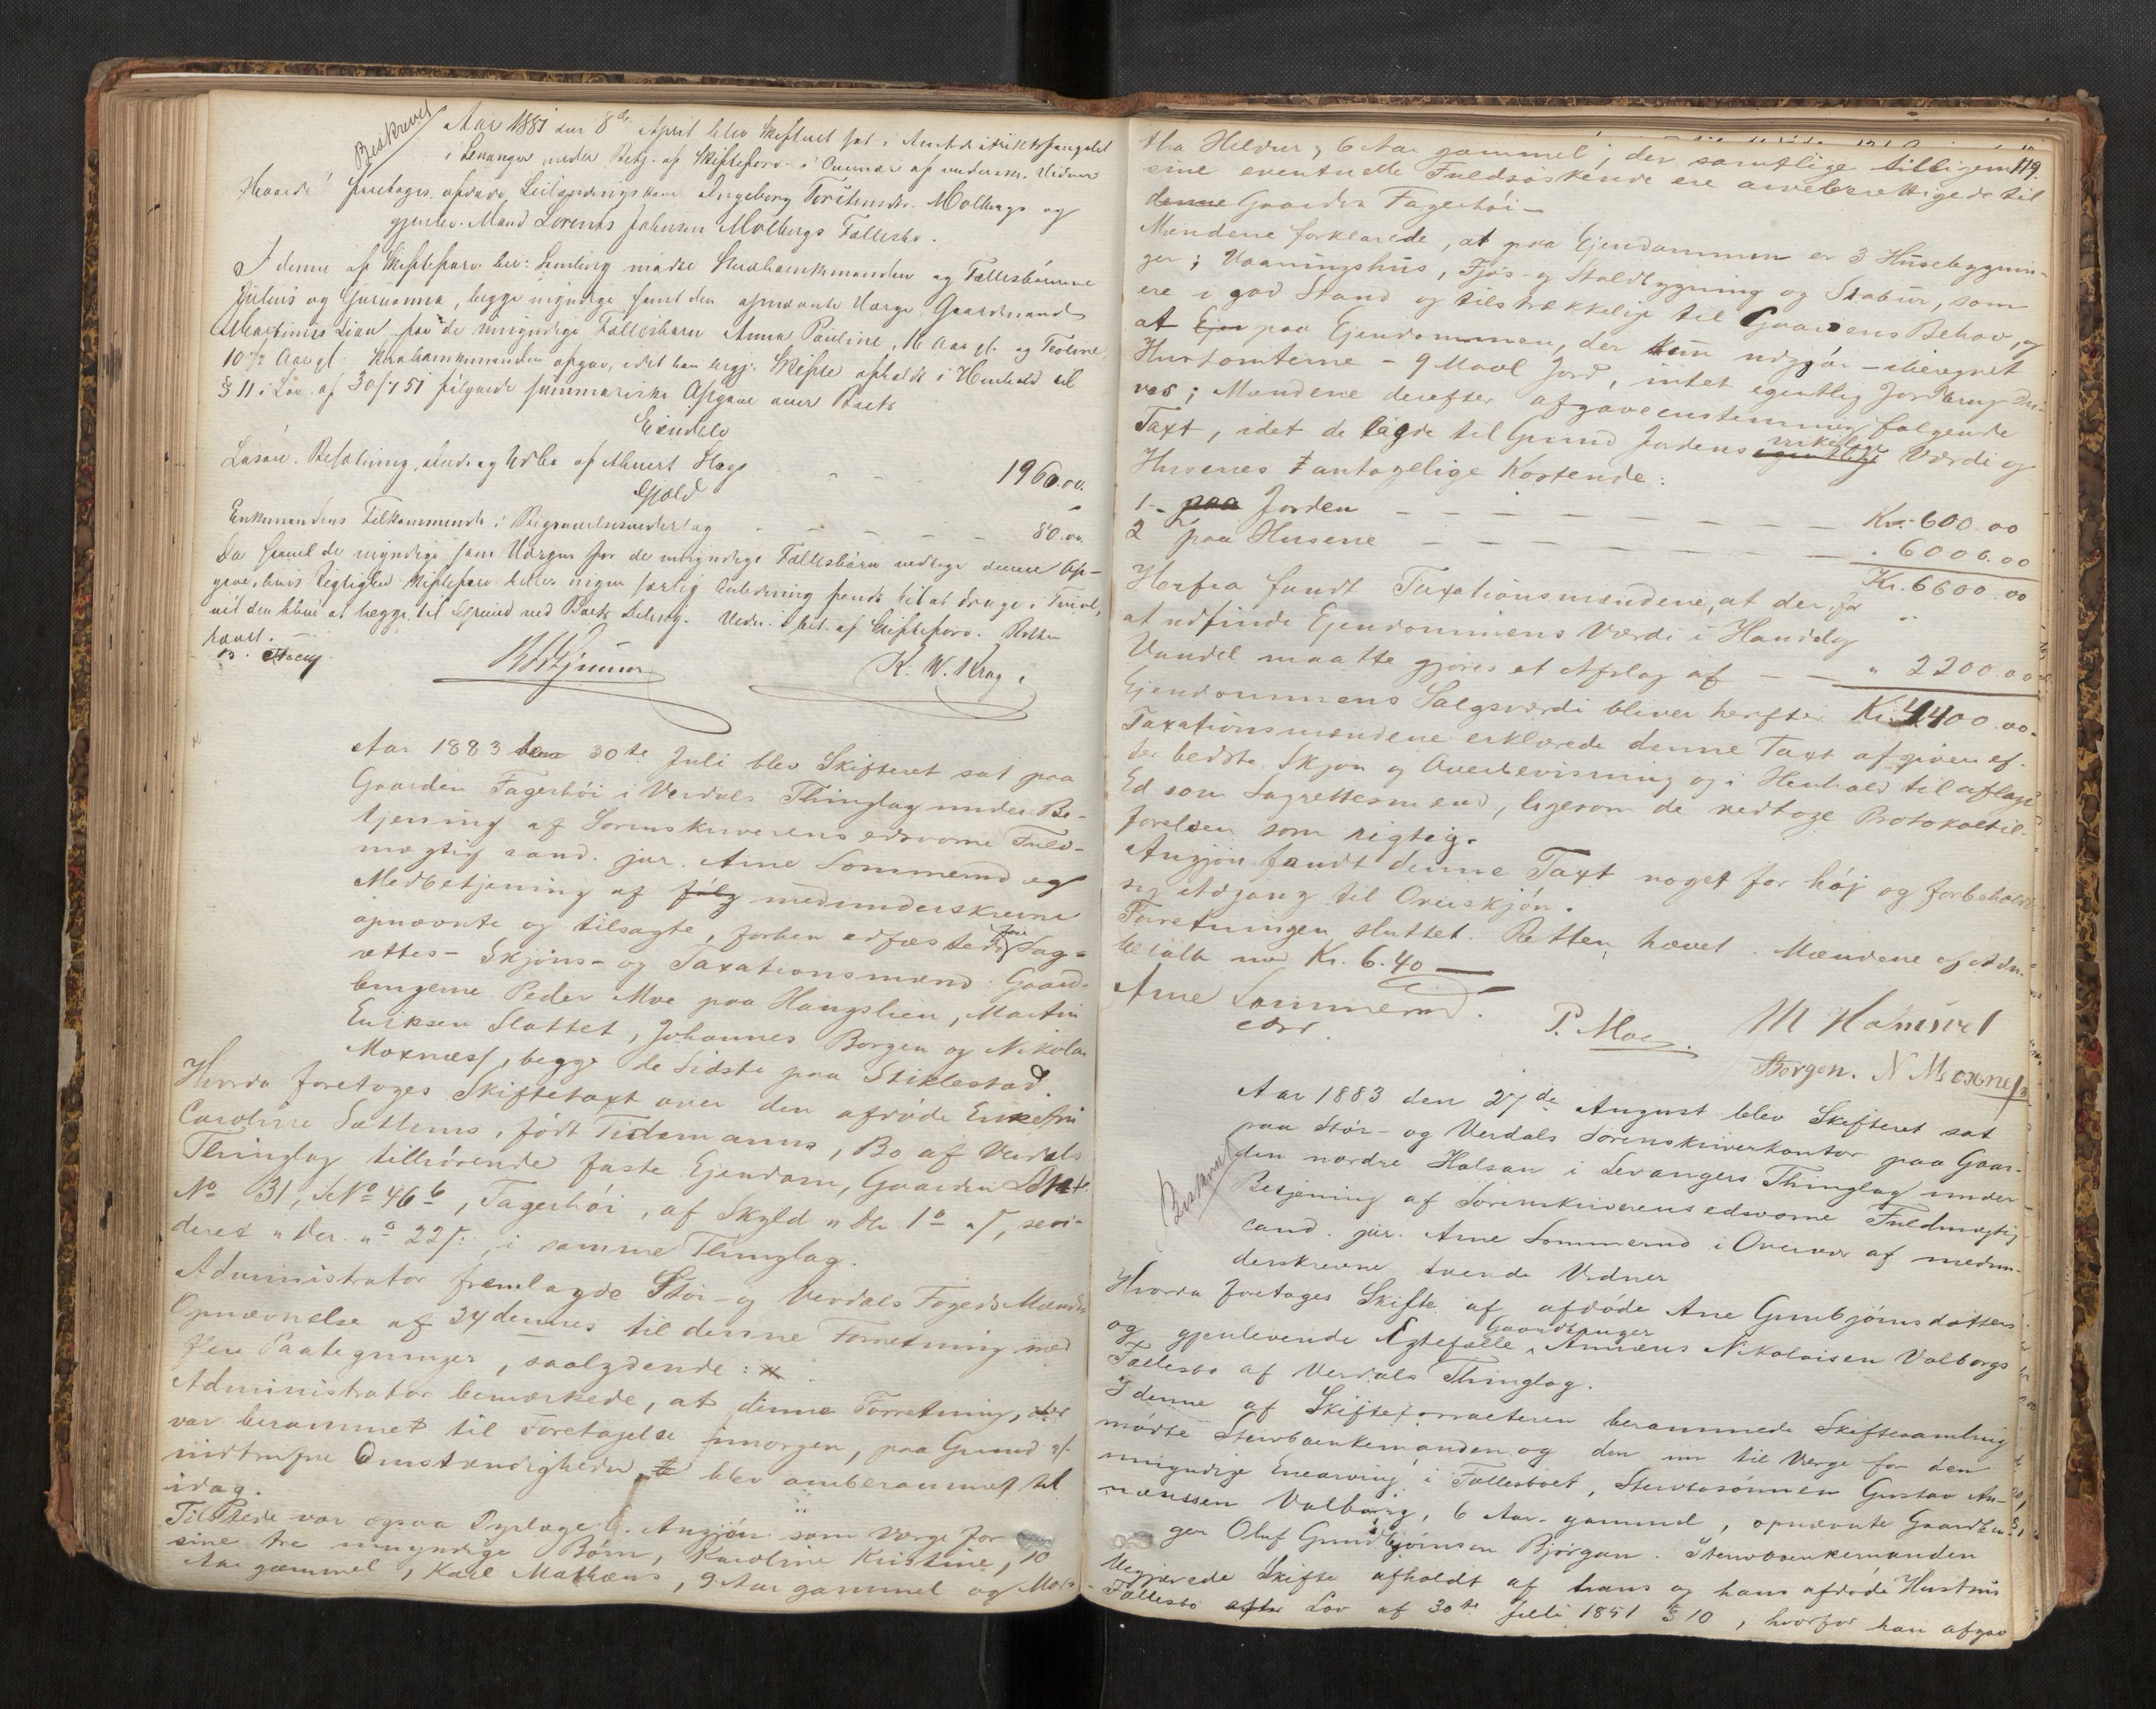 Beskrevet
Aar 1881 den 8de April blev Skifteret sat i Amtsdistriktsfængslet
i Levanger under Betj. af Skifteforv. i Overvær af underskr. Vidner
Hvorda foretages afdøde Leilændingskone Ingeborg Torstensdtr. Molbergs og
gjenlev. Mand Lorents Johnsen Molbergs Fællesbo.
I denne af Skifteforv. ber: Samling mødte Sterboenkemanden og Fællesbørnene
Julius og Gurianna, begge myndige samt den opnævnte Værge Gaardmand
Martinus Lian for de umyndige Fællesbørn Anna Pauline, 16 Aar gl. og Teoline
10½ Aar gl. Sterboenkemanden opgav, idet han begj: Skifte afholdt i Henhold til
§ 11 i Lov af 30/7 51 følgende summariske Opgave over Boets
Eiendele
Løsøre, Besætning, Indring Udbo af Huert Slags - - - 1960.00.
Gjæld
Enkemandens Tilkommende i Begravelsesvederlag - - - - - 80.00.
Da saavel de myndige som Værgen for de umyndige Fællesbørn vedtoge denne Op-
gave, hvis Rigtighed Skifteforv. heller ingen særlig Anledning fandt til at drage i Tvivl,
vil den blive at lægge til Grund ved Boets Deling. Vedn. i bet. af Skifteforv. Retten
hævet.
K. W. Krag
Aar 1883 den 30te Juli blev Skifteret sat paa
Gaarden Fagerhøi i Verdals Thinglag under Be-
tjening af Sorenskriverens edsvorne Fuld-
mægtig cand. jur. Arne Sommerud og
Medbetjening af følg medunderskrevne
opnævnte og tilsagte, forhen edfæstede fire Lag-
rettes- Skjøns- og Taxationsmænd: Gaard-
brugerne Peder Moe paa Haugslien, Martin
Eriksen Slottet, Johannes Borgen og Nikolai
Moxnæss, begge de Sidste paa Stiklestad.
Hvorda foretoges Skiftetaxt over den afdøde Enkefru
Caroline Sattems, født Tidemanns, Bo af Verdals
Thinglag tilhørende faste Ejendom, Gaarden Matr.
No 31, LNo 46 b, Fagerhøi, af Skyld " Dlr. 1 o " ſ, revi-
deret " Dlr. " o 22 ſ:, i samme Thinglag.
Administrator fremlagde Stør- og Verdals Fogeds Mænds
Opnævnelse af 24 dennes til denne Forretning med
flere Paategninger, saalydende: ⁒
Administrator bemærkede, at denne Forretning, der
var berammet til Foretagelse imorgen, paa Grund af
indtrufne Omstændigheder te blev omberammet til
idag.
Tilstede var ogsaa Dyrlæge C. Angjøn som Værge for
sine tre umyndige Børn, Karoline Kristine, 10
Aar gammel, Karl Mathæus, 9 Aar gammel og Mar-
119.
tha Heldur, 6 Aar gammel, der samtlige tilligem
sine eventuelle Fuldsøskende ere arveberettigede til
denne Gaarden Fagerhøi -
Mændene forklarede, at paa Ejendommen er 3 Husebygnin-
ger; Vaaningshus, Fjøs- og Staldbygning og Stabur, som
ere i god Stand og tilstrækkelige til Gaardens Behov, og
at Ejen paa Ejendommen, der kun udgjør - iberegnet
Hustomterne - 9 Maal Jord, intet egentlig Jordbrug dri-
ves; Mændene derefter afgave enstemmig følgende
Taxt, idet de lagde til Grund Jordens egentlige virkelige Værdi og
Husenes antagelige Kostende:
1- paa Jorden - - - - - - - - Kr. 600.00
2 paa Husene - - - - - - - - - " 6000.00
Kr. 6600.00
Herfra fandt Taxationsmændene, at der for
at udfinde Ejendommens Værdi i Handel og
Vandel maatte gjøres et Afslag af - - " 2200.00
Ejendommens Salgsværdi bliver herefter Kr. 4400.00.
Taxationsmændene erklærede denne Taxt afgiven ef-
ter bedste Skjøn og Overbevisning og i Henhold til aflagt
Ed som Lagrettesmænd, ligesom de vedtoge Protokoltil-
førelsen som rigtig.
Angjøn fandt denne Taxt noget for høj og forbeholdt
sig Adgang til Overskjøn.
Forretningen sluttet. Retten hævet. Mændene af Adm.
betalte med Kr. 6.40
Arne Sommerud.
const.
P. Moe. M Holmvel
Borgen. N Moxnes
Beskrevet
Aar 1883 den 27de August blev Skifteret sat
paa Stør- og Verdals Sorenskriverkontor paa Gaar-
den nordre Halsan i Levangers Thinglag under
Betjening af Sorenskriverens edsvorne Fuldmægtig
cand. jur. Arne Sommerud i Overvær af medun-
derskrevne tvende Vidner
Hvorda foretages Skifte af afdøde Ane Gunbjørnsdatters
og gjenlevende Ægtefælle, Gaardbruger Annæus Nikolaisen Valborgs
Fællesbo af Verdals Thinglag.
I denne af Skifteforvalteren berammede Skiftesamling
mødte Sterboenkemanden og den nu til Værge for den
umyndige Enearving i Fællesboet, Sterbosønnen Gustav An-
næussen Valborg, 6 Aar gammel, opnævnte Gaardbru-
ger Oluf Gundbjørnsen Bjørgan. Sterboenkemanden
begjærede Skifte afholdt af hans og hans afdøde Hustrus
Fællesbo efter Lov af 30te Juli 1851 § 10, hvorfor han afgav